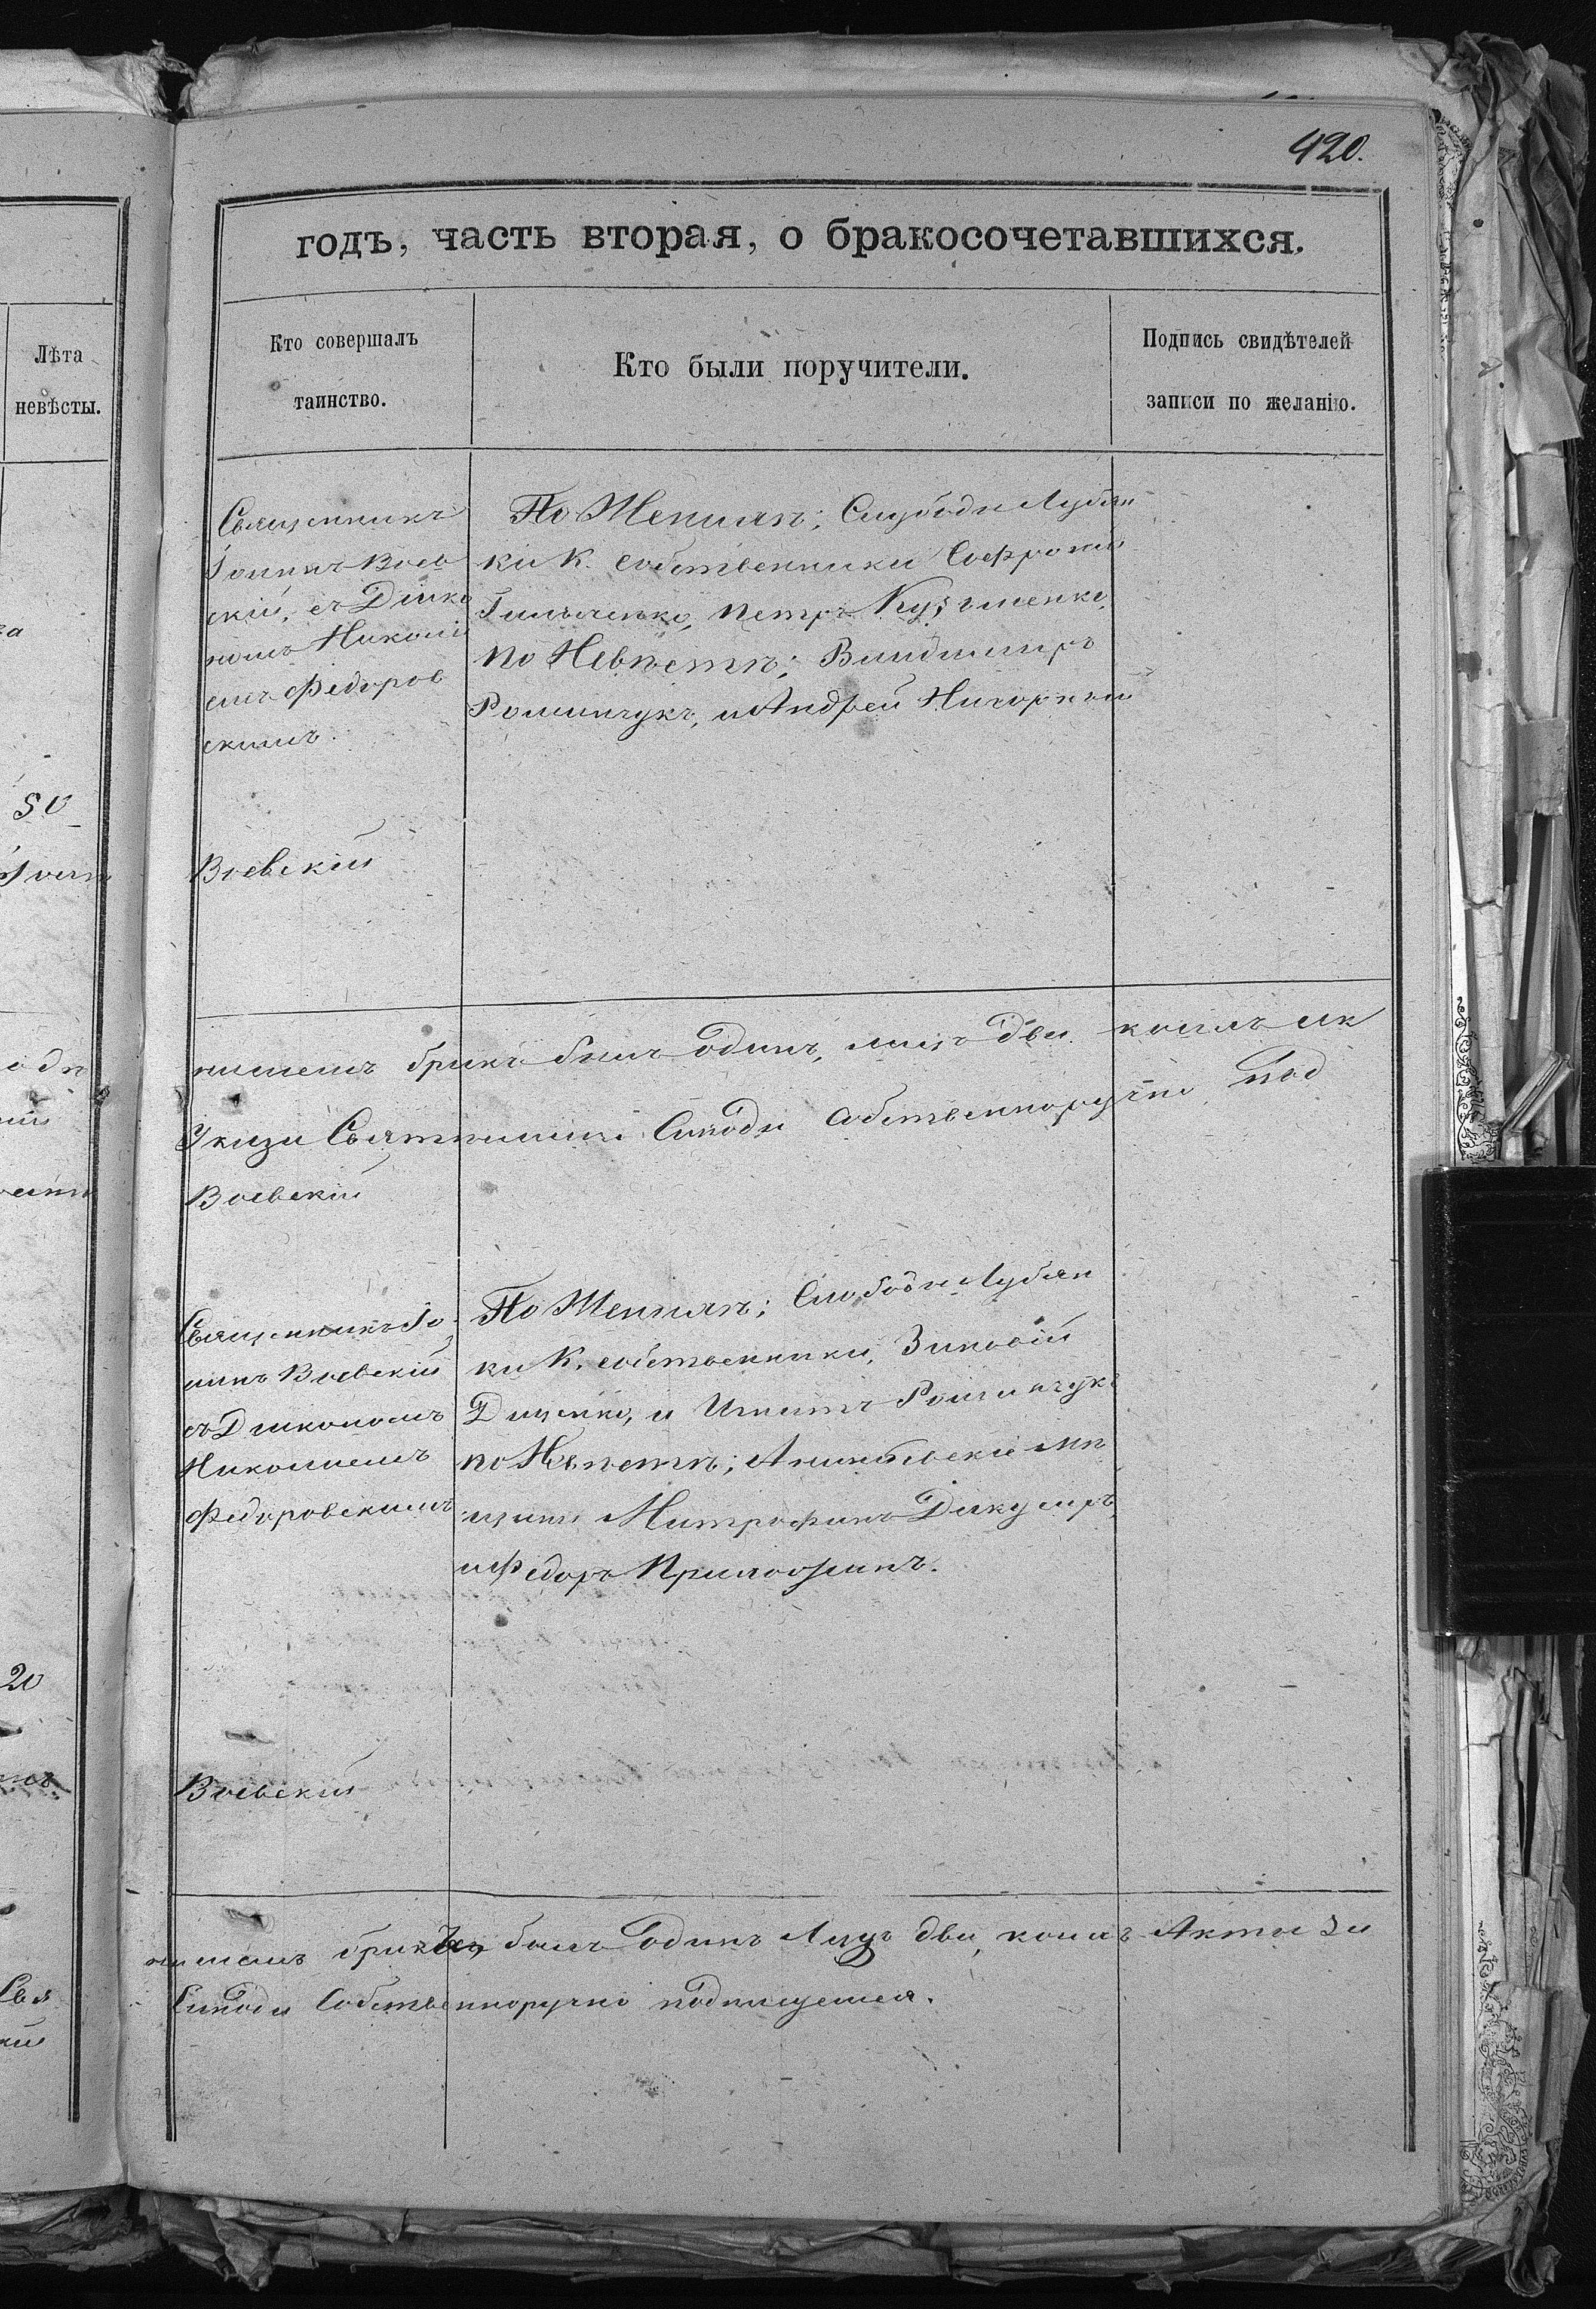 420.
годъ, часть вторая, о бракосочетавшихся.
Лѣта
невѣсты.
Кто совершалъ
таинство.
Кто были поручители.
Подпись свидѣтелей
записи по желанію.
Священникъ
Іоаннъ Воев
скій, съ Діако
номъ Никола
емъ Федоров
скимъ.
Воевскій
По Женихѣ; Слободы Лубян
ки К. собственники Софроній
Петръ Кузьменко,
по Невѣстѣ; Владимиръ
Романчукъ, и Андрей Нагорный
50
нашемъ бракъ былъ одинъ, лицъ два. коимъ ак
Указа Святѣйшаго Синода собственноручно под
Воевскій
Священникъ Іо
аннъ Воевскій
съ Діакономъ
Николаемъ
Федоровскимъ
Воевскій
По Женихѣ; Слободы Лубян
ки К. собственники, Зиновій
и Игнатъ Романчукъ
по Невѣстѣ; Мѣ
щане Митрофанъ
и Федоръ
20
бракъ былъ одинъ Лицъ два, коимъ Актъ за
Синода Собственноручно подписуемся.